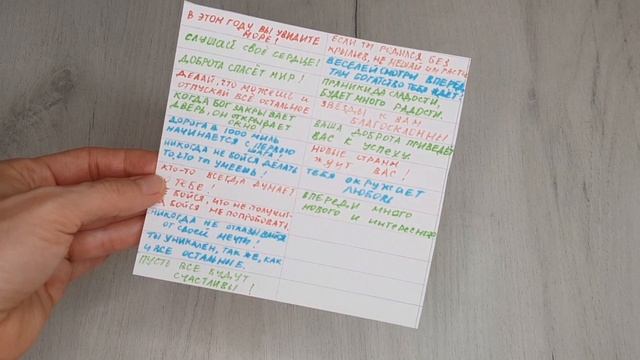 В ЭТОМ ГОДУ ВЫ УВИДИТЕ
МОРЕ!
СЛУШАЙ СВОЁ СЕРДЦЕ!
ДОБРОТА СПАСЁТ МИР!
ДЕЛАЙ, ЧТО МОЖЕШЬ И
ОТПУСКАЙ ВСЁ ОСТАЛЬНОЕ
КОГДА БОГ ЗАКРЫВАЕТ
ДВЕРЬ, ОН ОТКРЫВАЕТ
ОКНО
ДОРОГА В 1000 МИЛЬ
НАЧИНАЕТСЯ С ПЕРВОГО
ШАГА!
НИКОГДА НЕ БОЙСЯ ДЕЛАТЬ
ТО, ЧТО ТЫ УМЕЕШЬ!
КТО-ТО ВСЕГДА ДУМАЕТ
ТЕБЕ!
БОЙСЯ, ЧТО НЕ ПОЛУЧИТ-
БОЙСЯ НЕ ПОПРОБОВАТЬ
НИКОГДА НЕ ОТКАЗЫВАЙСЯ
ОТ СВОЕЙ МЕЧТЫ!
ТЫ УНИКАЛЕН, ТАК ЖЕ, КАК
И ВСЕ ОСТАЛЬНЫЕ.
ПУСТЬ ВСЕ БУДУТ
СЧАСТЛИВЫ!
ЕСЛИ ТЫ РОДИЛСЯ БЕЗ
КРЫЛЬЕВ, НЕ МЕШАЙ ИМ РАСТИ
ВЕСЕЛЕЙ СМОТРИ ВПЕРЁД
ТАМ БОГАТСТВО ТЕБЯ ЖДЁТ!
ПРЯНИКИ ДА СЛАДОСТИ,
БУДЕТ МНОГО РАДОСТИ.
ЗВЁЗДЫ К ВАМ
БЛАГОСКЛОННЫ
ВАША ДОБРОТА ПРИВЕДЁТ
ВАС К УСПЕХУ.
НОВЫЕ СТРАНЫ
ЖДУТ ВАС!
ТЕБЯ ОКРУЖАЕТ
ЛЮБОВЬ
ВПЕРЕДИ МНОГО
НОВОГО И ИНТЕРЕСНОГО